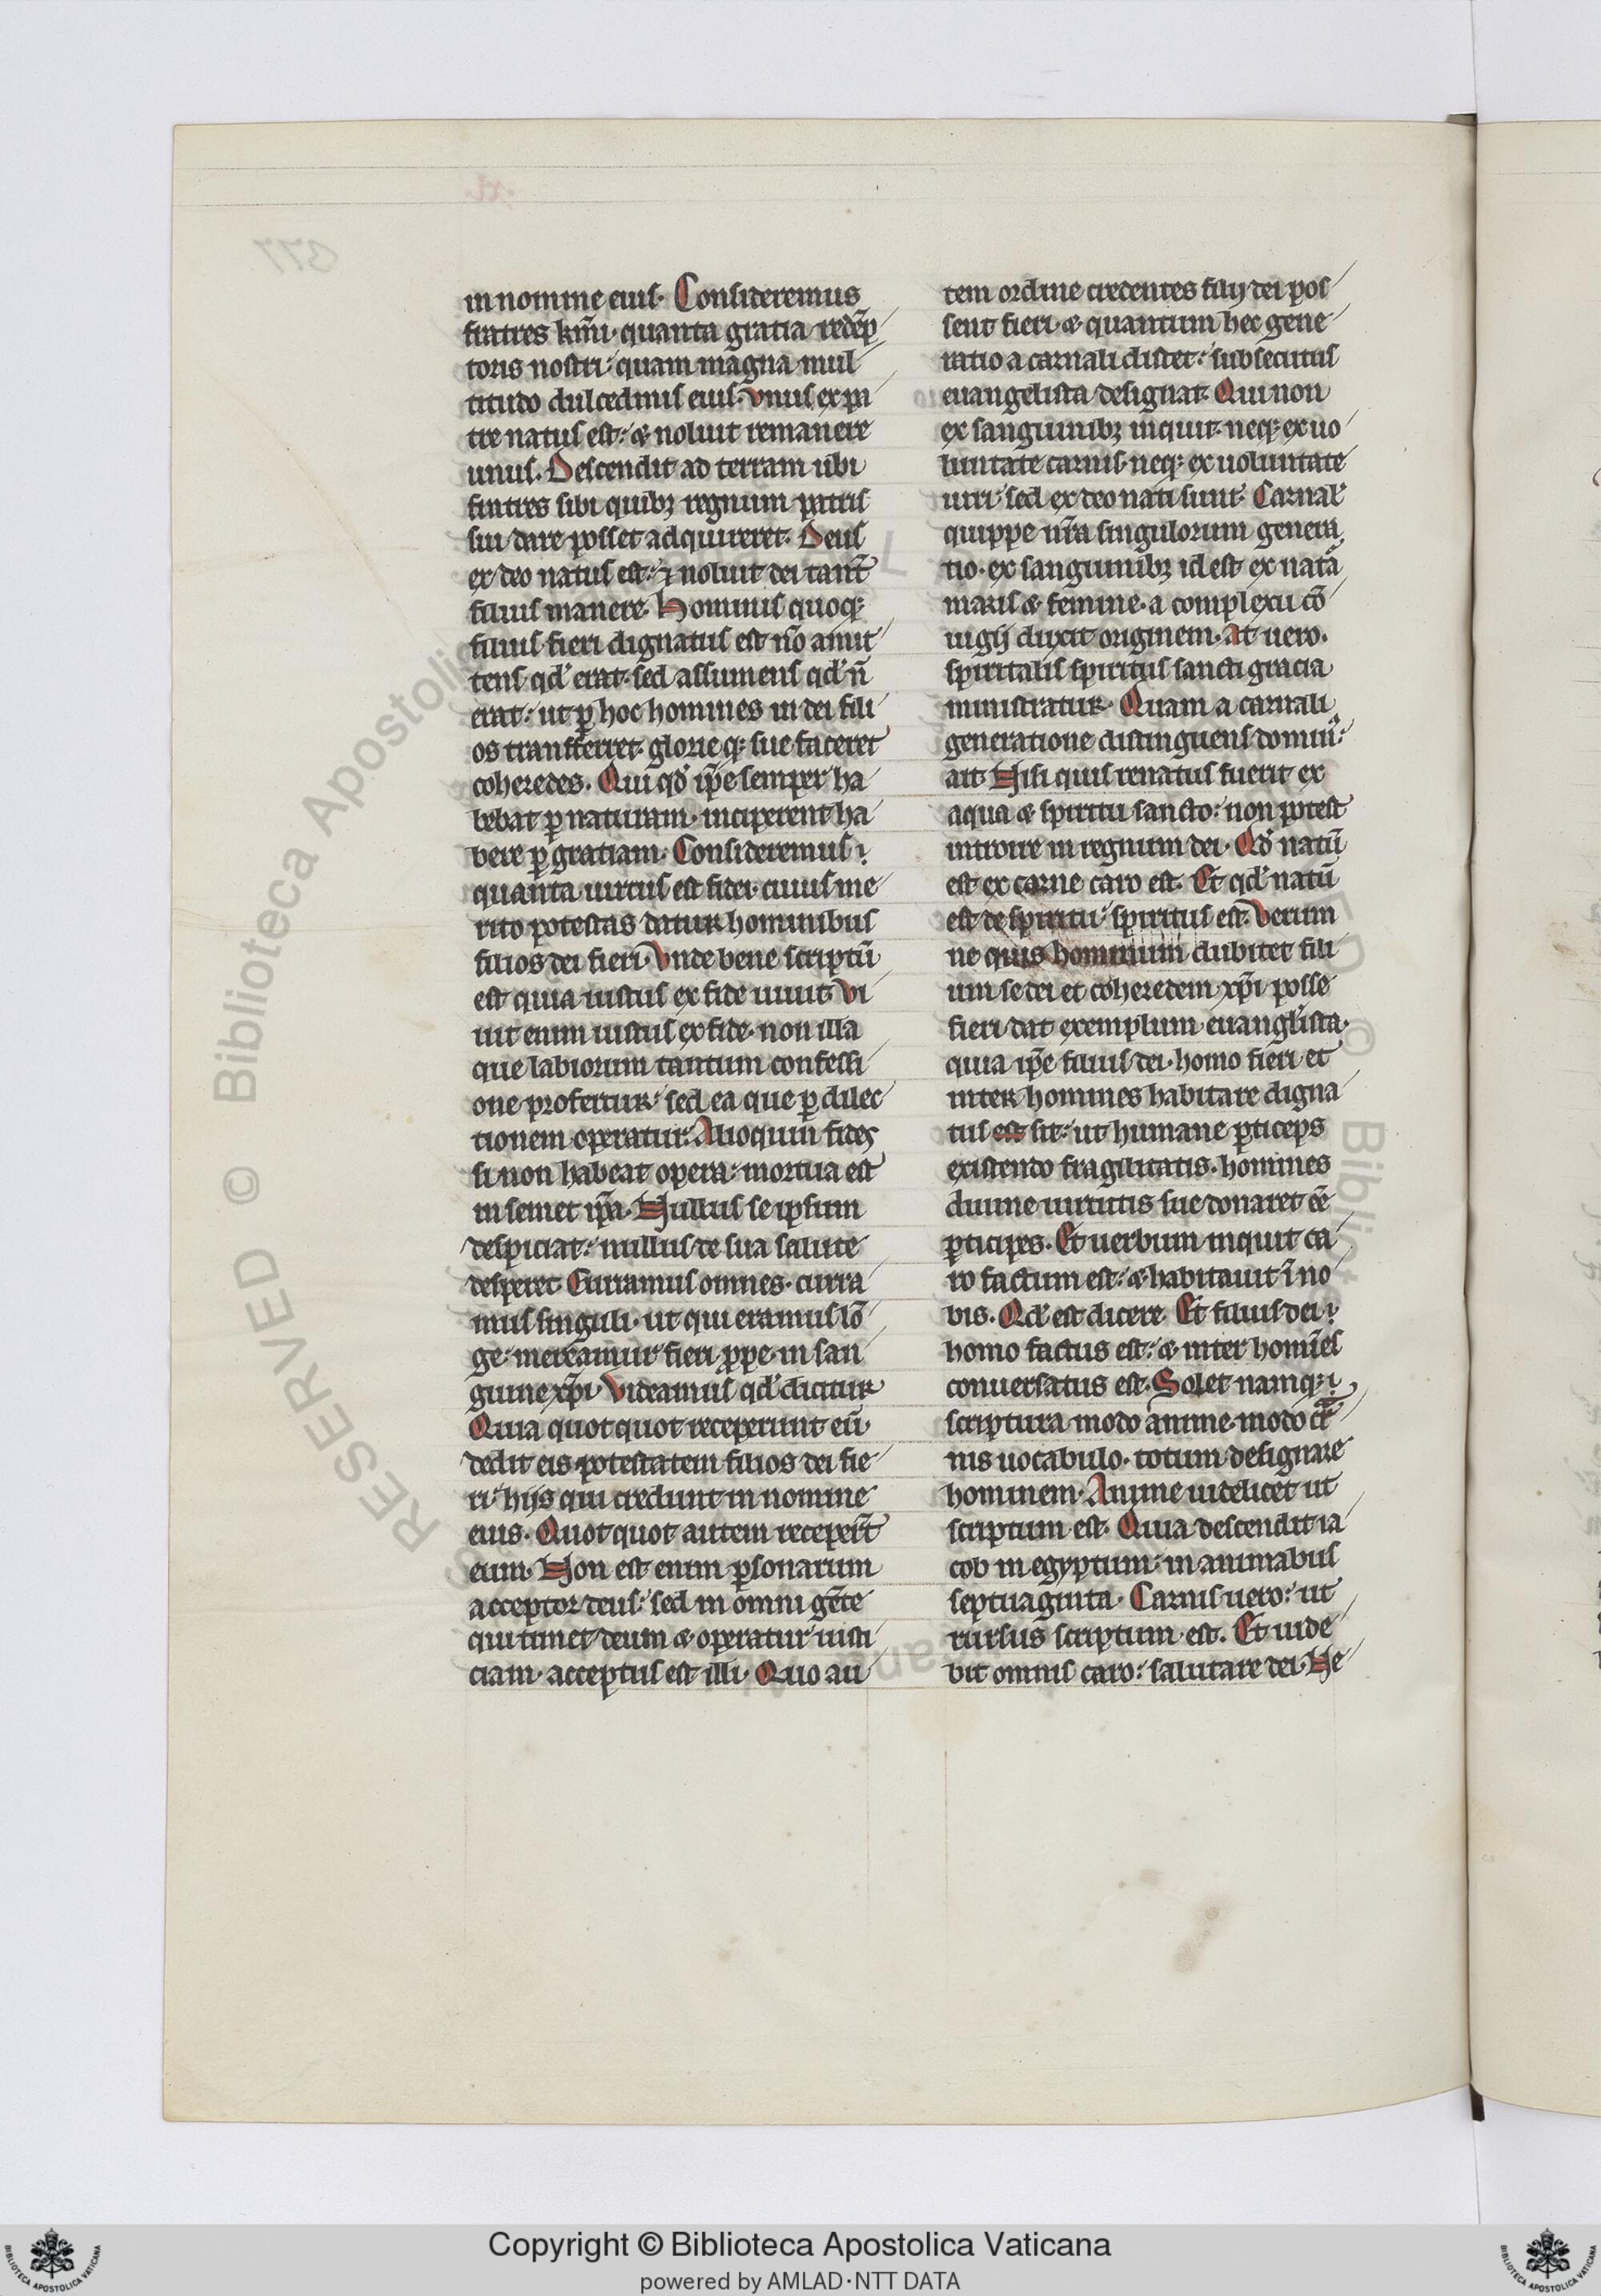 in nomine eius. Consideremus
fratres kmi. quanta gratia redēp
toris nostri: quam magna mul
titudo dulcedinis eius. Vnus ex pa
tre natus est: & noluit remanere
unus. Descendit ad terram ubi
fratres sibi quibꝫ regnum patris
sui dare posset adquireret. Deus
ex deo natus est: ⁊ noluit dei tant̄
filius manere. Hominis quoqꝫ
filius fieri dignatus est nō amit
tens qd' erat. sed assumens qd' n̄
erat: ut ꝑ hoc homines in dei fili
os transferret. glorie qꝫ sue faceret
coheredes. Qui qd' ip̄e semper ha
bebat ꝑ naturam. inciperent ha
bere ꝑ gratiam. Consideremus
quanta uirtus est fidei. cuius me
rito potestas datur hominibus
filios dei fieri. Vnde bene scriptū
est quia iustus ex fide uiuit. Vi
uit enim iustus ex fide. non illa
que labiorum tantum confessi
one profertur: sed ea que ꝑ dilec
tionem operatur. Alioquin fides
si non habeat opera: mortua est
in semet ip̄a. Nullus se ipsum
despiciat: nullus de sua salute
desperet. Curramus omnes. curra
mus singuli. ut qui eramus lō
ge: mereamur fieri ꝓpe. in san
guine xp̄i. Videamus qd' dicitur
Quia quotquot receperunt eū.
dedit eis potestatem filios dei fie
ri: hijs qui credunt in nomine
eius. Quotquot autem receper̄t
eum. Non est enim ꝑsonarum
acceptor deus: sed in omni gēte
qui timet deum & operatur iusti
ciam. acceptus est illi. Quo au
tem ordine credentes filij dei pos
sent fieri. & quantum hec gene
ratio a carnali distet: subsecutus
euangelista designat. Qui non
ex sanguinibꝫ inquit. neqꝫ ex uo
luntate carnis. neqꝫ ex uoluntate
uiri: sed ex deo nati sunt. Carnal'
quippe nr̄a singulorum genera
tio. ex sanguinibꝫ id est ex natā
maris & femine. a complexu cō
iugij duxit originem. At uero.
spiritalis spiritus sancti gracia
ministratur. Quam a carnali
generatione distinguens domin̄:
ait. Nisi quis renatus fuerit ex
aqua & spiritu sancto: non potest
introire in regnum dei. Qd' natū
est ex carne caro est. Et qd' natū
est de spiritu: spiritus est. Verum
ne quis hominum dubitet fili
um se dei et coheredem xp̄i posse
fieri dat exemplum euangl'ista.
quia ip̄e filius dei. homo fieri et
inter homines habitare digna
tus est sit: ut humane ꝑticeps
existendo fragilitatis. homines
diuine uirtutis sue donaret ēē
ꝑticipes. Et uerbum inquit ca
ro factum est: & habitauit ī no
bis. Qd' est dicere. Et filius dei
homo factus est: & inter homīes
conuersatus est. Solet namqꝫ
scriptura modo anime. modo cr̄
nis uocabulo. totum designare
hominem. Anime uidelicet ut
scriptum est. Quia descendit ia
cob in egyptum: in animabus
septuaginta. Carnis uero: ut
rursus scriptum est. Et uide
bit omnis caro: salutare dei. He
Copyright © Biblioteca Apostolica Vaticana
powered by AMLAD·NTT DATA